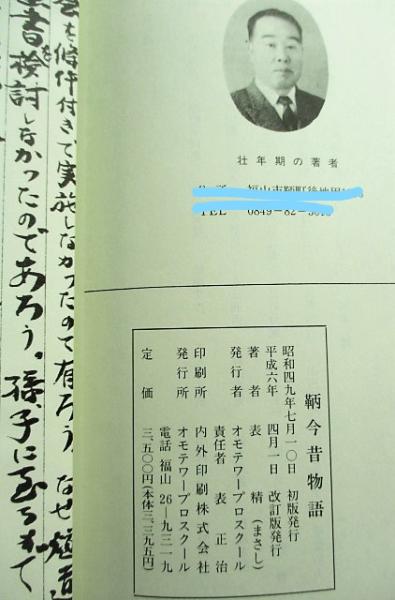 壮年期の著者
鞆今昔物語
昭和四九年七月一〇日 初版発行
平成六年 四月一日 改訂版発行
著者 表 精(まさし)
発行者 オモテワープロスクール
責任者 表 正治
印刷所 内外印刷株式会社
発行所 オモテワープロスクール
電話 福山 26-九三一九
定価 三、五〇〇円(本体三、三九五円)
を條件付きで実施しなかったので有ろう、なぜ
書を検討しなかったのであろう。孫、子に至るまで